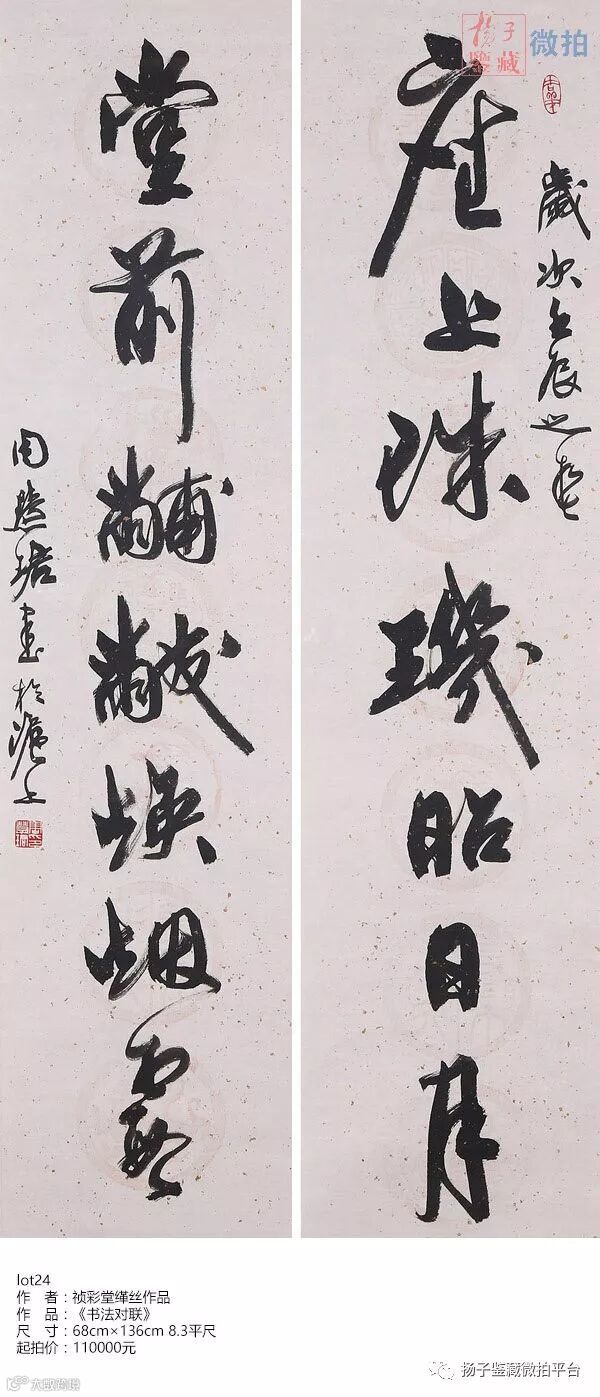 揚子
鑒藏
微拍
座上珠璣昭日月
歲次壬辰之春
堂前黼黻焕烟霞
周慧珺書於滬上
lot24
作 者：祯彩堂缂丝作品
作 品：《书法对联》
尺 寸：68cm×136cm 8.3平尺
起拍价：110000元
扬子鉴藏微拍平台
大数跨境